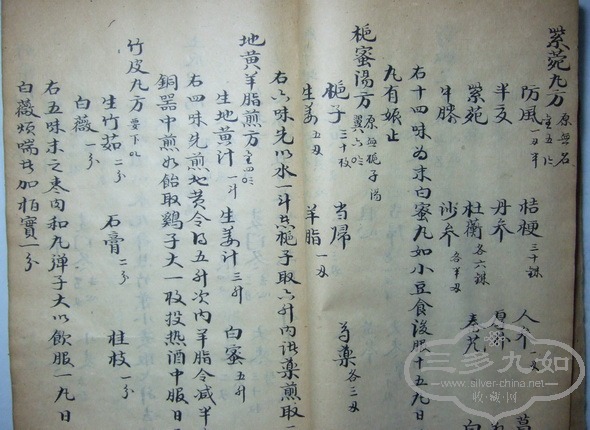 紫菀丸方 原無石
防風 一両半 桔梗 三十銖 人参
半夏 丹参
紫菀 杜蘅 各六銖
牛膝 沙参 各半両
右十四味為末白蜜丸如小豆食後服十五丸日
九有娠止
梔子湯方
梔子 三十枚 当帰 芍薬 各三両
生姜 五両 羊脂 一両
右六味先以水一斗煮梔子取六升内諸薬煎取
地黄羊脂煎方
生地黄汁 一斗 生姜汁 三升 白蜜 五升
右四味先煎地黄令得五升次内羊脂令減半
銅器中煎如飴取鶏子大一枚投熱酒中服日
竹皮丸方
生竹茹 二分 石膏 二分 桂枝 一分
白薇 一分
右五味末之枣肉和丸弾子大以飲服一丸日
白薇煩喘者加柏實一分
三多九如
www.silver-china.net
收藏网